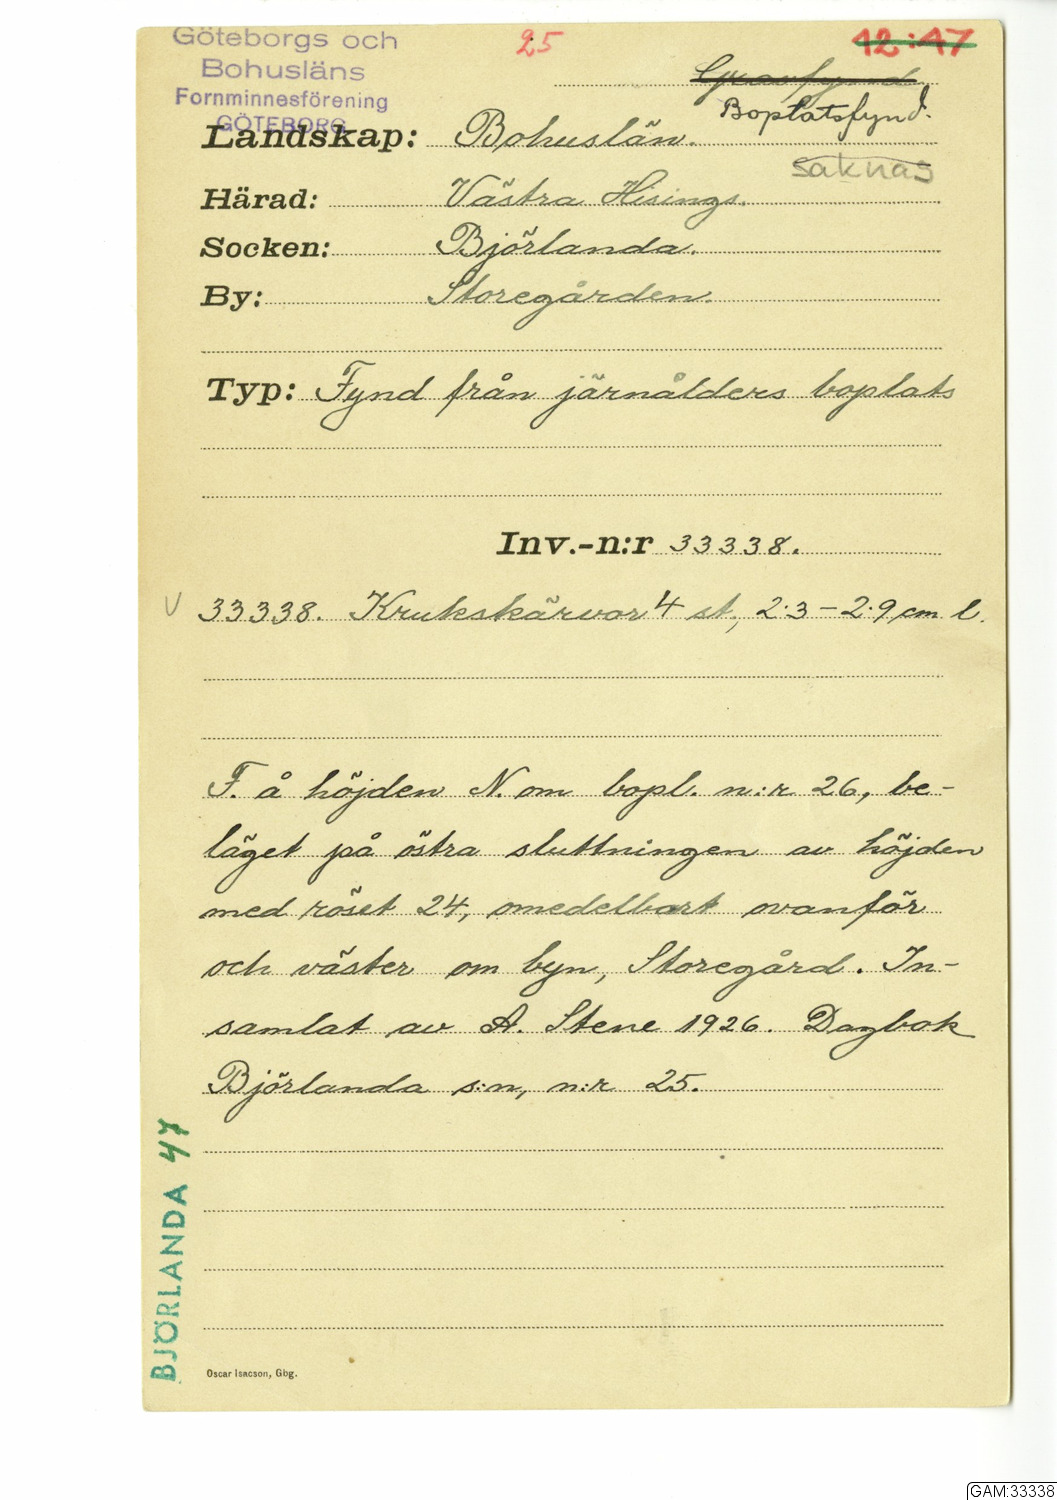 Göteborgs och
Bohusläns
Fornminnesförening
GÖTEBORG
25
12:47
Gravfynd
Boplatsfynd.
Landskap: Bohuslän.
saknas
Härad: Västra Hisings.
Socken: Björlanda.
By: Storegården.
Typ: Fynd från järnålders boplats
Inv.-n:r 33338.
V 33338. Krukskärvor 4 st, 2:3 – 2:9 cm l.
F. å höjden N. om bopl. n:r 26, be-
läget på östra sluttningen av höjden
med röset 24, omedelbart ovanför
och väster om byn, Storegård. In-
samlat av A. Stene 1926. Dagbok
Björlanda s:n, n:r 25.
BJÖRLANDA 47
Oscar Isacson, Gbg.
GAM:33338